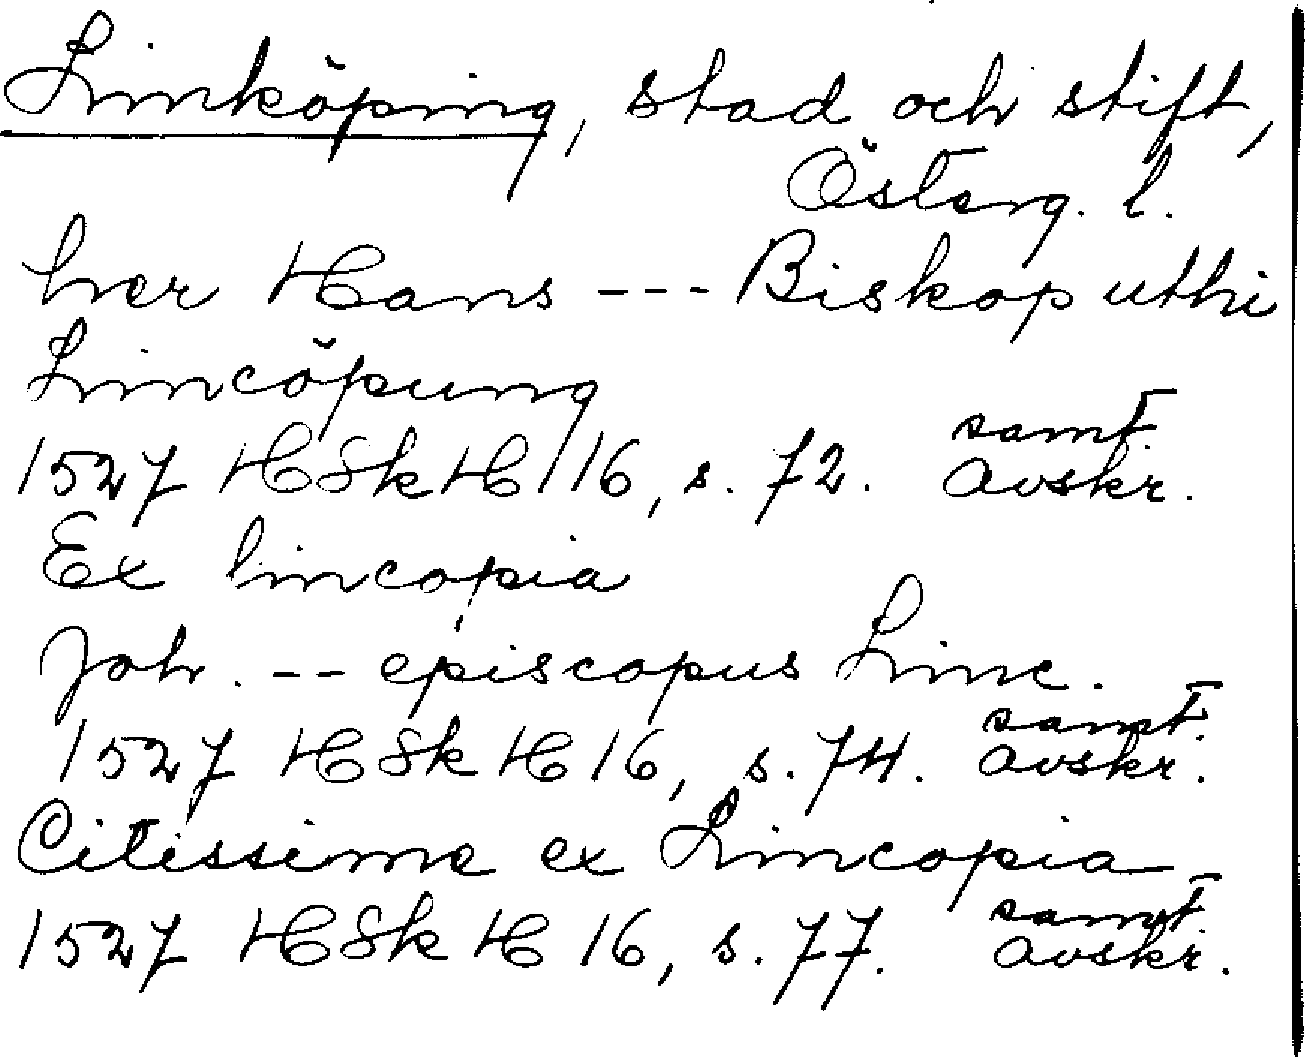 Linköping, stad och stift,
Österg. l.
her Hans --- Biskop uthi
Lincöpung
1527 HSk H 16, s. 72. samt. avskr.
Ex lincopia
Joh. -- episcopus Linc.
1527 HSk H 16, s. 74. samt. avskr.
Citissime ex Lincopia
1527 HSk H 16, s. 77. samt. avskr.